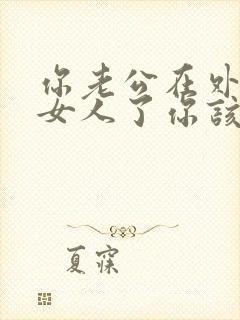 你老公在外
女人了你該
夏寐